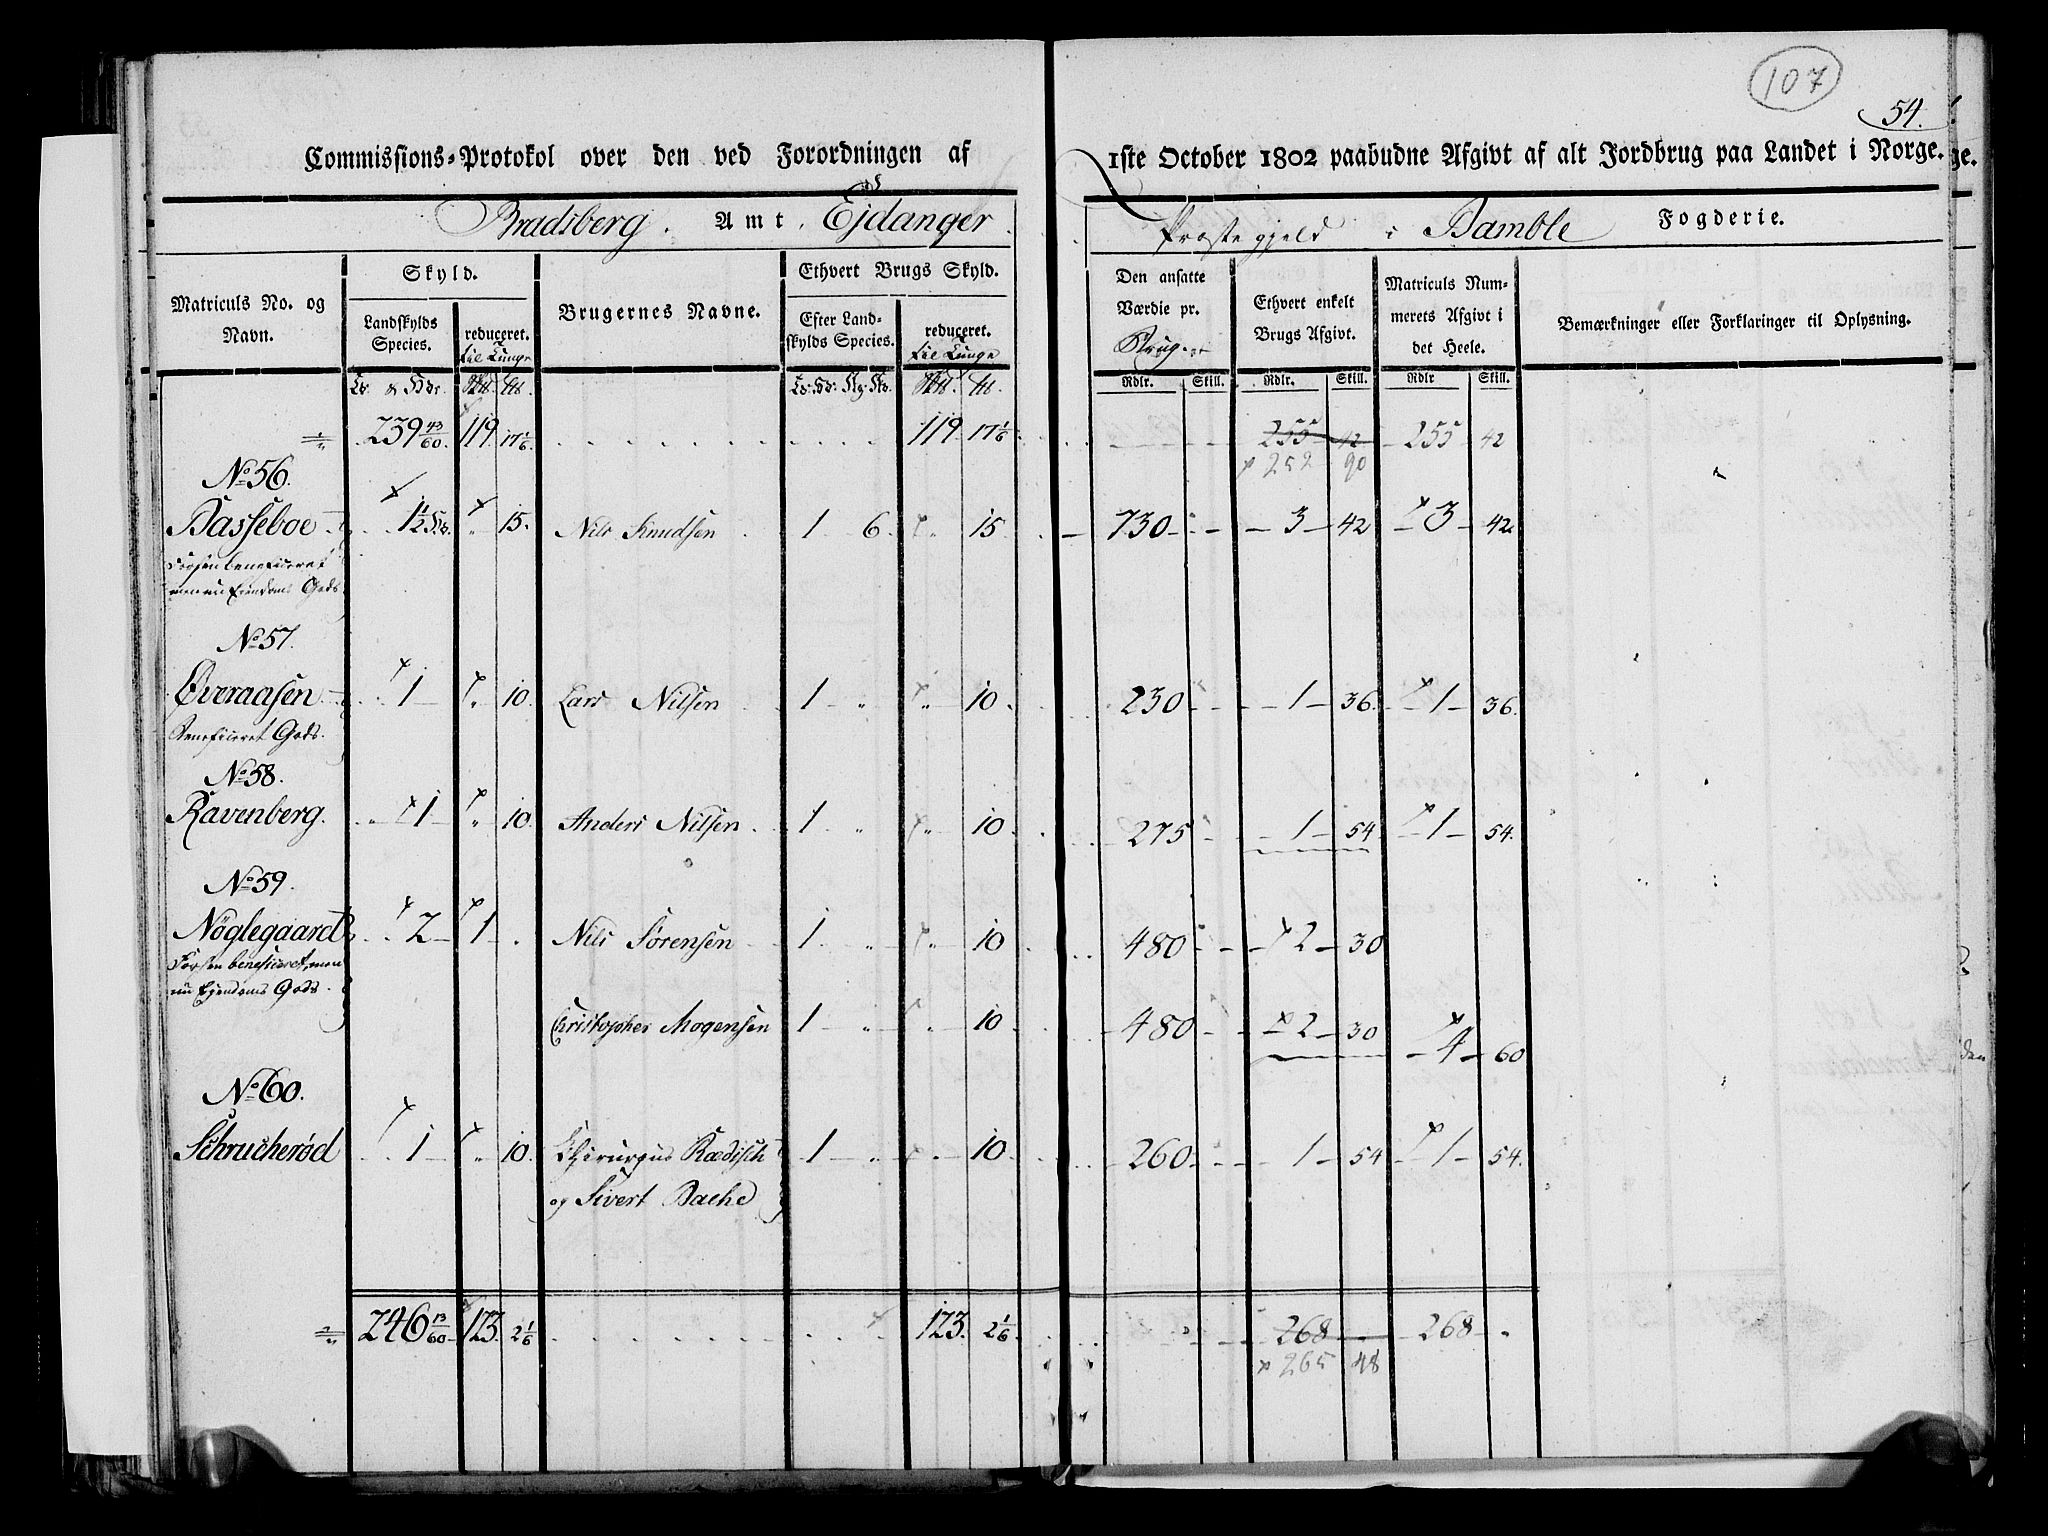 107
54.
Commissions-Protokol over den ved Forordningen af 1ste October 1802 paabudne Afgivt af alt Jordbrug paa Landet i Norge.
Bradsberg. Amt. Ejdanger Præstegjeld i Bamble Fogderie.
Matriculs No. og Navn.
Skyld.
Landskylds Species.
reduceret. til Tunge
Brugernes Navne.
Ethvert Brugs Skyld.
Efter Landskylds Species.
reduceret. til Tunge
Den ansatte Værdie pr.
Ethvert enkelt Brugs Afgivt.
Matriculs Nummerets Afgivt i det Heele.
Bemærkninger eller Forklaringer til Oplysning.
Rdlr. Skill. Rdlr. Skill. Rdlr Skill.
239 43/60 119 17 1/6 119 17 1/6 255 42 255 42
252 90
No 56.
Basseboe 1 1/2 15. Nils Knudsen 1 6 15 730 3 42 3 42
Forhen beneficeret
men nu Eiendoms Gods
No 57.
Øveraasen 1 10 Lars Nilsen 1 10 230 1 36 1 36.
Beneficeret Gods.
No 58.
Ravenberg. 1 10 Anders Nilsen 1 10 275 1 54 1 54.
No 59.
Nöglegaard 2 1 Nils Sørensen 1 10 480 2 30
Forhen beneficeret, men
nu Ejendoms Gods.
Christopher Mogensen 1 10 480 2 30 4 60
No 60.
Schrucherød 1 10 Chirurgus Rædisch 1 10 260 1 54 1 54.
og Sivert Bache
246 13/60 123. 2 1/6 123. 2 1/6 268 268
265 48